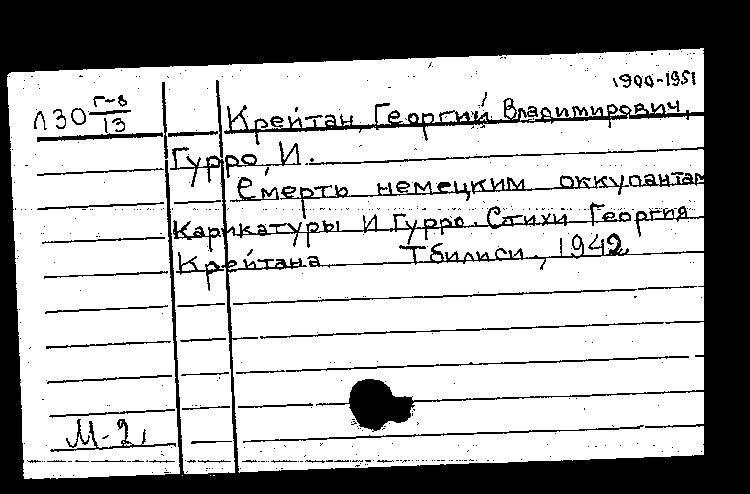 1900-1951
Л30 Г-8/13
Крейтан, Георгий Владимирович,
Гурро, И.
Смерть немецким оккупантам
Карикатуры И Гурро. Стихи Георгия
Крейтана Тбилиси, 1942
М-2,